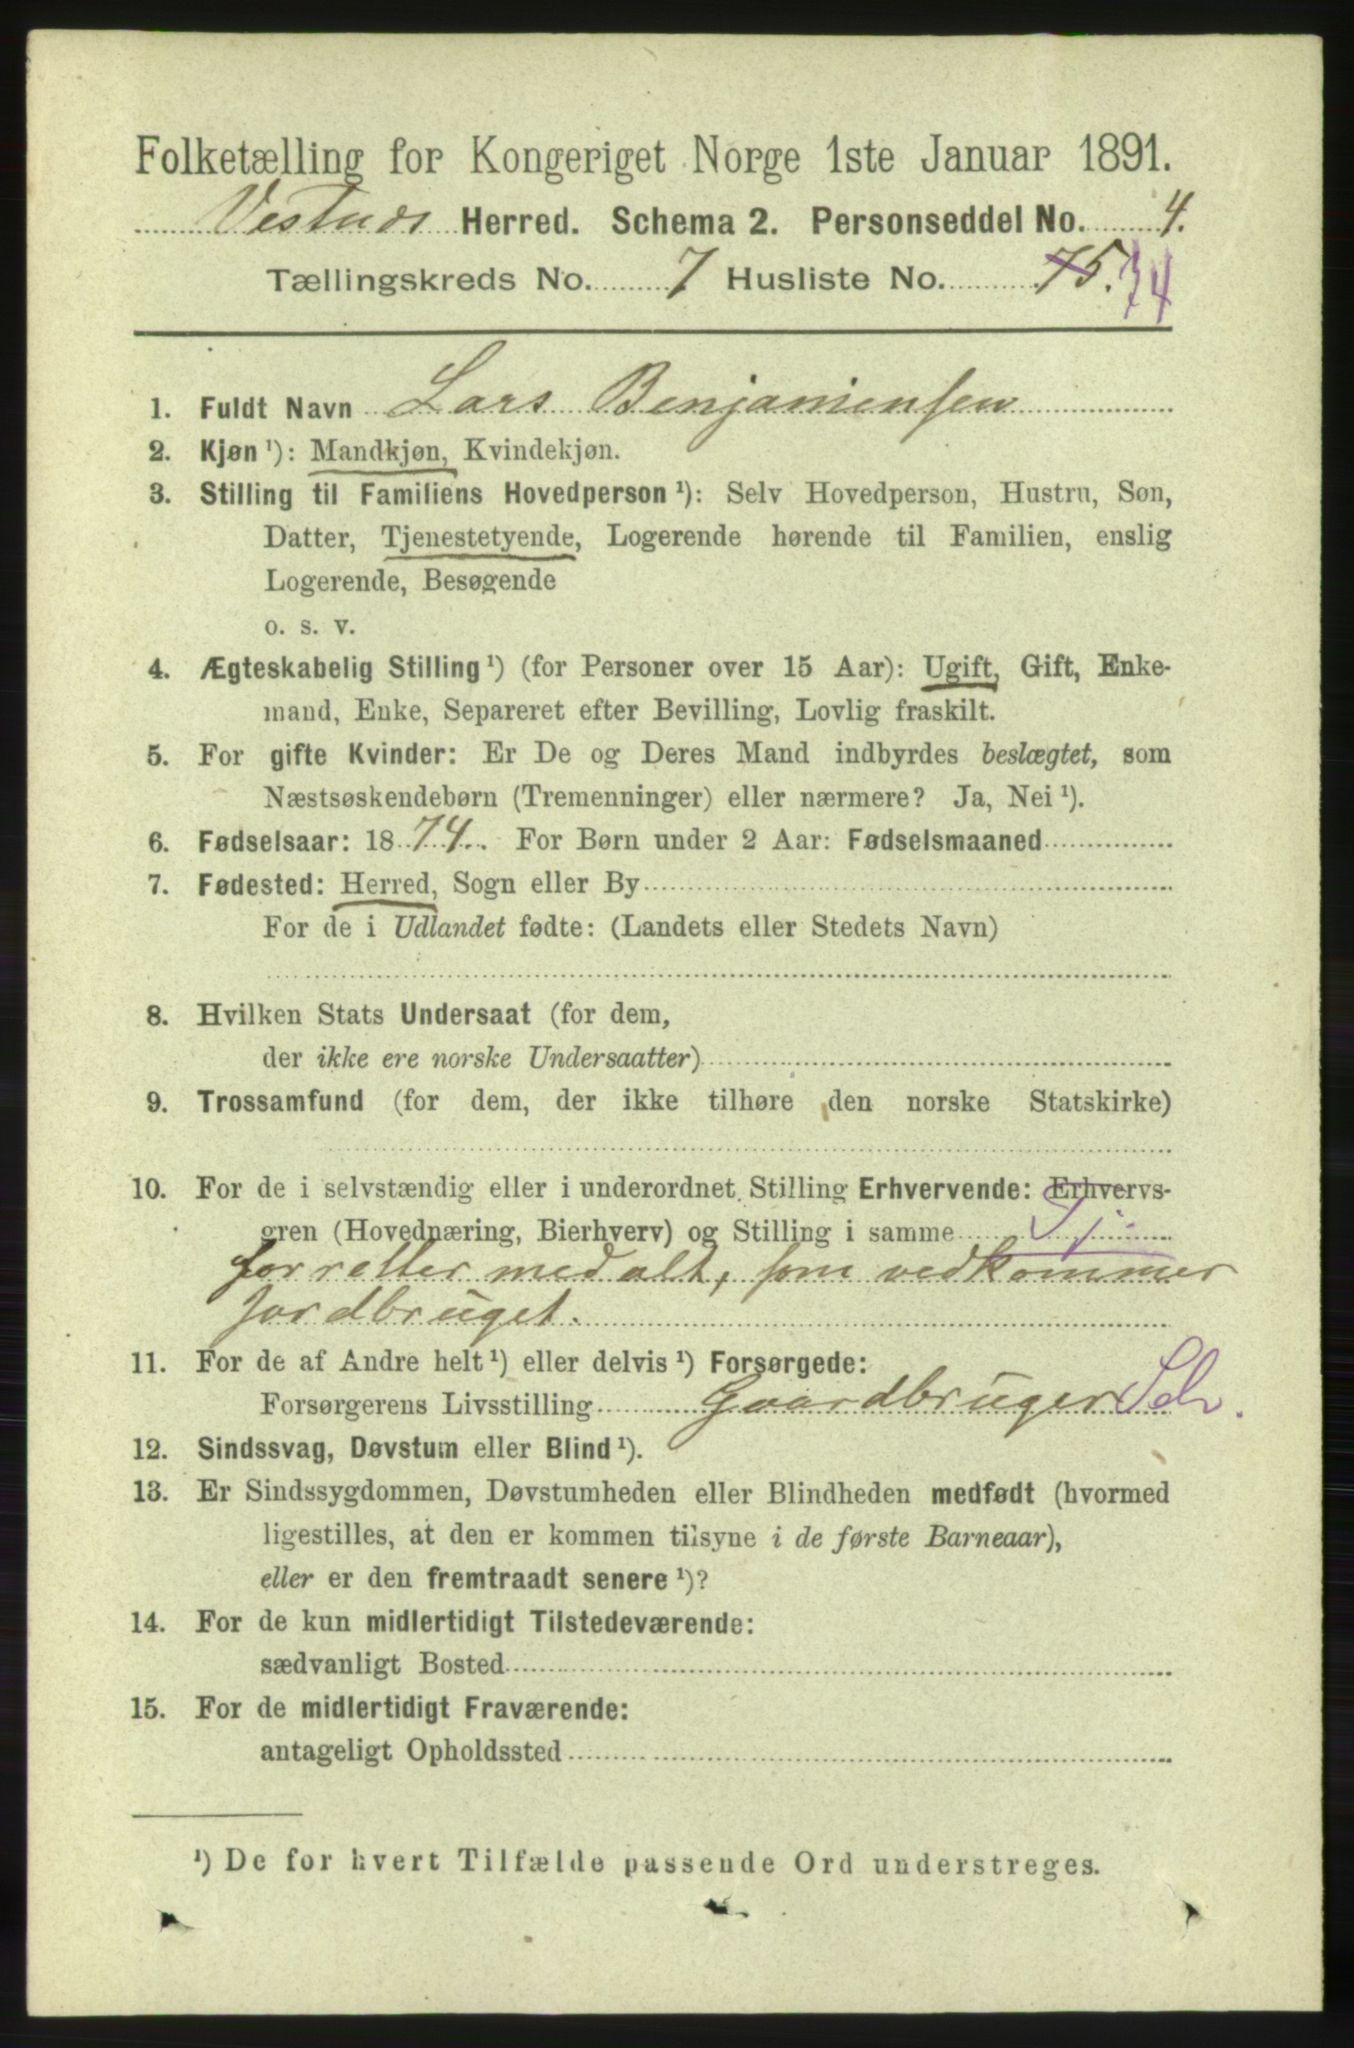 Folketælling for Kongeriget Norge 1ste Januar 1891.
Vestnæs Herred. Schema 2. Personseddel No. 4.
Tællingskreds No. 7 Husliste No. 75. 74
1. Fuldt Navn Lars Benjamiensen
2. Kjøn ¹): Mandkjøn, Kvindekjøn.
3. Stilling til Familiens Hovedperson ¹): Selv Hovedperson, Hustru, Søn,
Datter, Tjenestetyende, Logerende hørende til Familien, enslig
Logerende, Besøgende
o. s. v.
4. Ægteskabelig Stilling ¹) (for Personer over 15 Aar): Ugift, Gift, Enke-
mand, Enke, Separeret efter Bevilling, Lovlig fraskilt.
5. For gifte Kvinder: Er De og Deres Mand indbyrdes beslægtet, som
Næstsøskendebørn (Tremenninger) eller nærmere? Ja, Nei ¹).
6. Fødselsaar: 1874. For Børn under 2 Aar: Fødselsmaaned
7. Fødested: Herred, Sogn eller By
For de i Udlandet fødte: (Landets eller Stedets Navn)
8. Hvilken Stats Undersaat (for dem,
der ikke ere norske Undersaatter)
9. Trossamfund (for dem, der ikke tilhøre den norske Statskirke)
10. For de i selvstændig eller i underordnet Stilling Erhvervende: Erhvervs-
gren (Hovednæring, Bierhverv) og Stilling i samme Tj.
forretter med alt, som vedkommer
Jordbruget.
11. For de af Andre helt ¹) eller delvis ¹) Forsørgede:
Forsørgerens Livsstilling Gaardbruger
12. Sindssvag, Døvstum eller Blind ¹).
13. Er Sindssygdommen, Døvstumheden eller Blindheden medfødt (hvormed
ligestilles, at den er kommen tilsyne i de første Barneaar),
eller er den fremtraadt senere ¹)?
14. For de kun midlertidigt Tilstedeværende:
sædvanligt Bosted
15. For de midlertidigt Fraværende:
antageligt Opholdssted
¹) De for hvert Tilfælde passende Ord understreges.